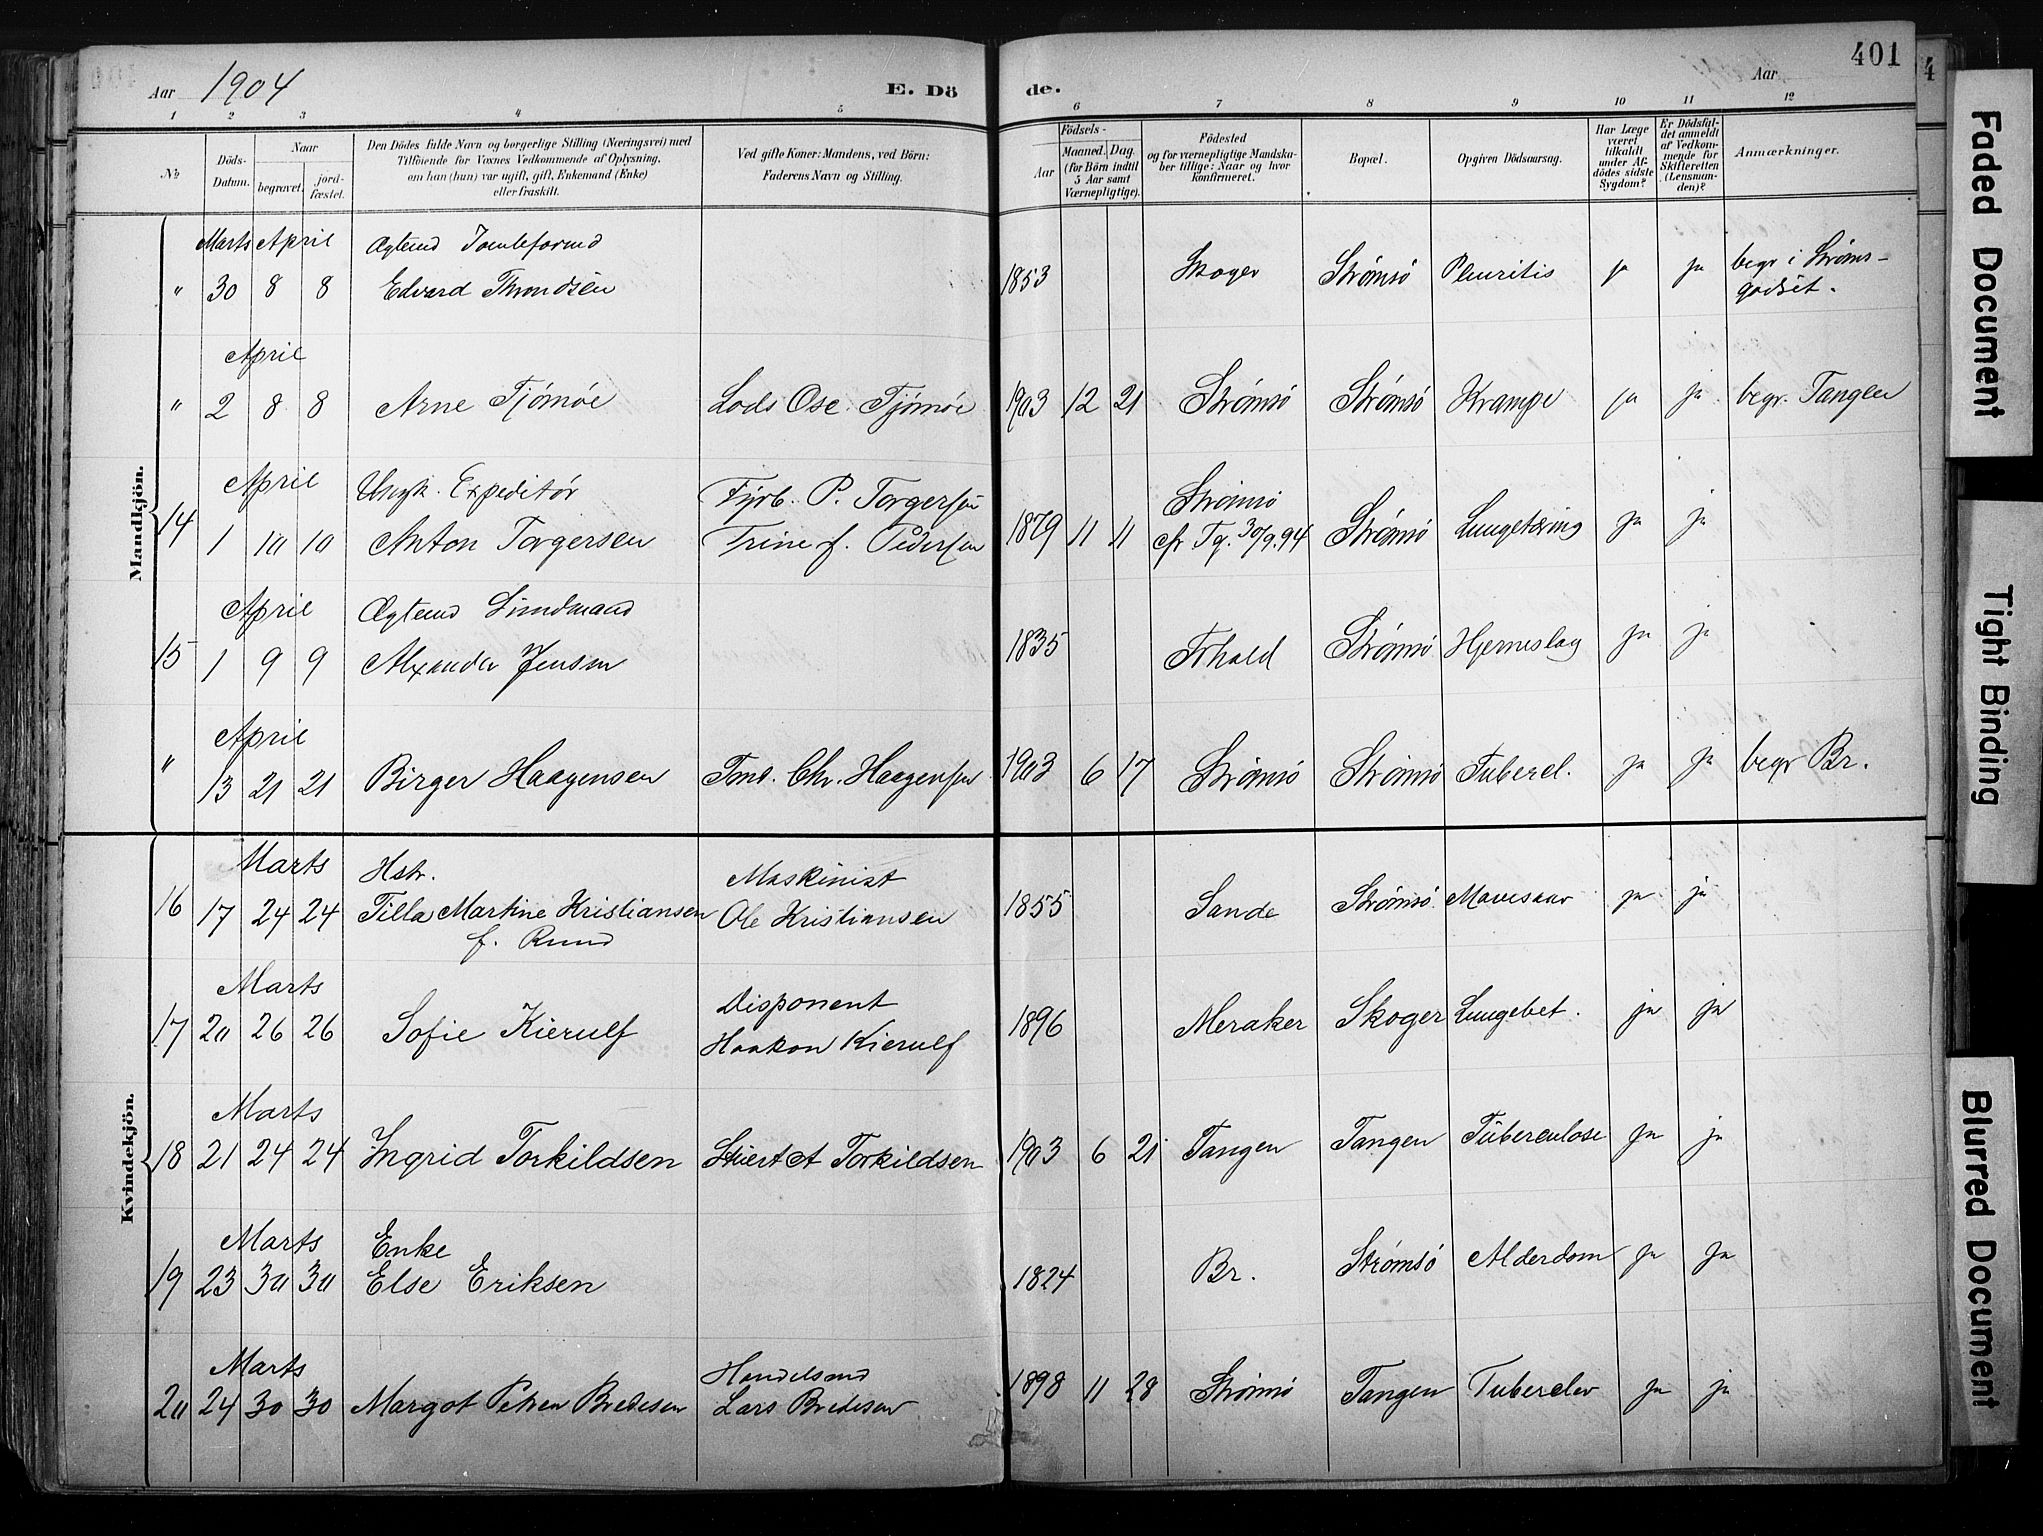 Aar 1904
E. Dö
de.
Aar
401
4
1 2 3 4 5 6 7 8 9 10 11 12
No
Döds-Datum.
Naar
begravet.
jord-fæstet.
Den Dödes fulde Navn og borgerlige Stilling (Næringsvei) med
Tilföiende for Voxnes Vedkommende af Oplysning,
om han (hun) var ugift, gift, Enkemand (Enke)
eller fraskilt.
Ved gifte Koner: Mandens, ved Börn:
Faderens Navn og Stilling.
Födsels-
Aar
Maaned. Dag.
(for Börn indtil
5 Aar samt
Værnepligtige).
Födested
og for værnepligtige Mandska-
ber tillige: Naar og hvor
konfirmeret.
Bopæl.
Opgiven Dödsaarsag.
Har Læge
været
tilkaldt
under Af-
dödes sidste
Sygdom?
Er Dödsfal-
det anmeldt
af Vedkom-
mende for
Skifteretten
(Lensman-
den)?
Anmærkninger.
Mandkjön.
Marts April Ægtemd
" 30 8 8 Edvard Throndsen 1853 Skoger Strømsø Pleuritis ja ja begr i Strøms-
godset.
April
" 2 8 8 Arne Tjömöe Lods Ose Tjömöe 1903 12 21 Strømsø Strømsø Krampe ja ja begr. Tangen
April Ungk. Expeditör Fyrb. P. Torgersen Strømsø
14 1 10 10 Anton Torgersen Trine f. Pedersen 1879 11 11 cfr Tg. 30/9.94 Strømsø Lungetæring ja ja
April Ægtemd
15 1 9 9 Alexander Jensen 1835 Frhald Strømsø Hjerneslag ja ja
April
" 13 21 21 Birger Haagensen Tønd. Chr. Haagensen 1903 6 17 Strømsø Strømsø Tubercl. ja ja begr Br.
Kvindekjön.
Marts Hstr. Maskinist
16 17 24 24 Tilla Martine Kristiansen Ole Kristiansen 1855 Sande Strømsø Mavesaar ja ja
f. Ruud
Marts Disponent
17 20 26 26 Sofie Kierulf Haakon Kierulf 1896 Meraker Skoger Lungebet. ja ja
Marts
18 21 24 24 Ingrid Torkildsen A Torkildsen 1903 6 21 Tangen Tangen Tuberculose ja ja
Marts Enke
19 23 30 30 Else Eriksen 1824 Br. Strømsø Alderdom ja ja
Marts Handelsmd
20 24 30 30 Margot Petren Bredesen Lars Bredesen 1898 11 28 Strømsø Tangen Tubercler ja ja
Faded Document
Tight Binding
Blurred Document